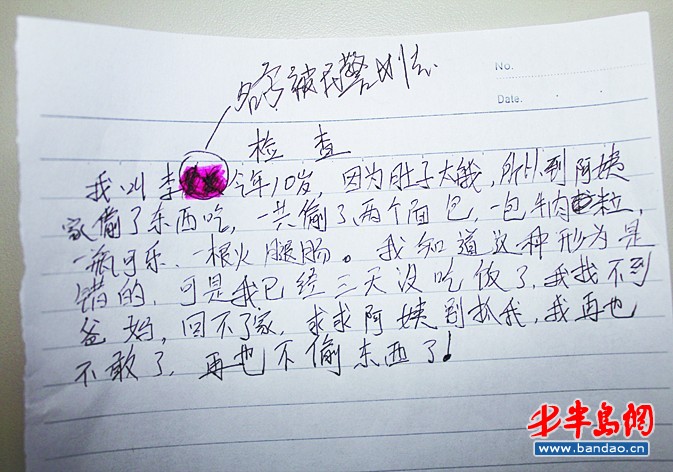 名字被民警划去
No.
Date.
检 查
我叫李 今年10岁, 因为肚子太饿, 所以到阿姨
家偷了东西吃, 一共偷了两个面包, 一包牛肉粒,
一瓶可乐、一根火腿肠。我知道这种形为是
错的, 可是我已经三天没吃饭了, 我找不到
爸妈, 回不了家, 求求阿姨别抓我, 我再也
不敢了, 再也不偷东西了!
半岛网
www.bandao.cn